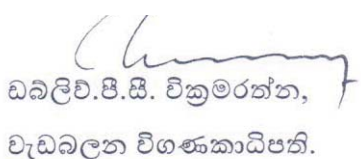 ඩබ්ලිව්.පී.සී. වික්‍රමරත්න,
වැඩබලන විගණකාධිපති.